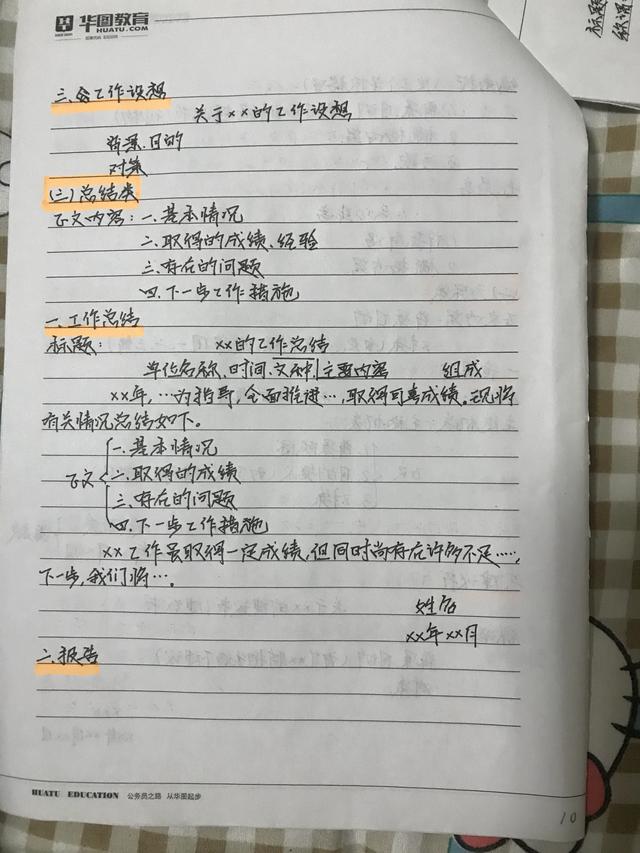 华图教育
HUATU.COM
标题
三、工作设想
关于××的工作设想
背景、目的
对策
(三)总结类
正文内容：一、基本情况
二、取得的成绩、经验
三、存在的问题
四、下一步工作措施
一、工作总结
标题： ××的工作总结
单位名称、时间、文种、主要内容 组成
××年，…为指导，全面推进…，取得可喜成绩。现将
有关情况总结如下。
一、基本情况
正文 二、取得的成绩
三、存在的问题
四、下一步工作措施
××工作虽取得一定成绩，但同时尚存在许多不足……，
下一步，我们将…。
姓名
××年××月
二、报告
HUATU EDUCATION 公务员之路 从华图起步
10